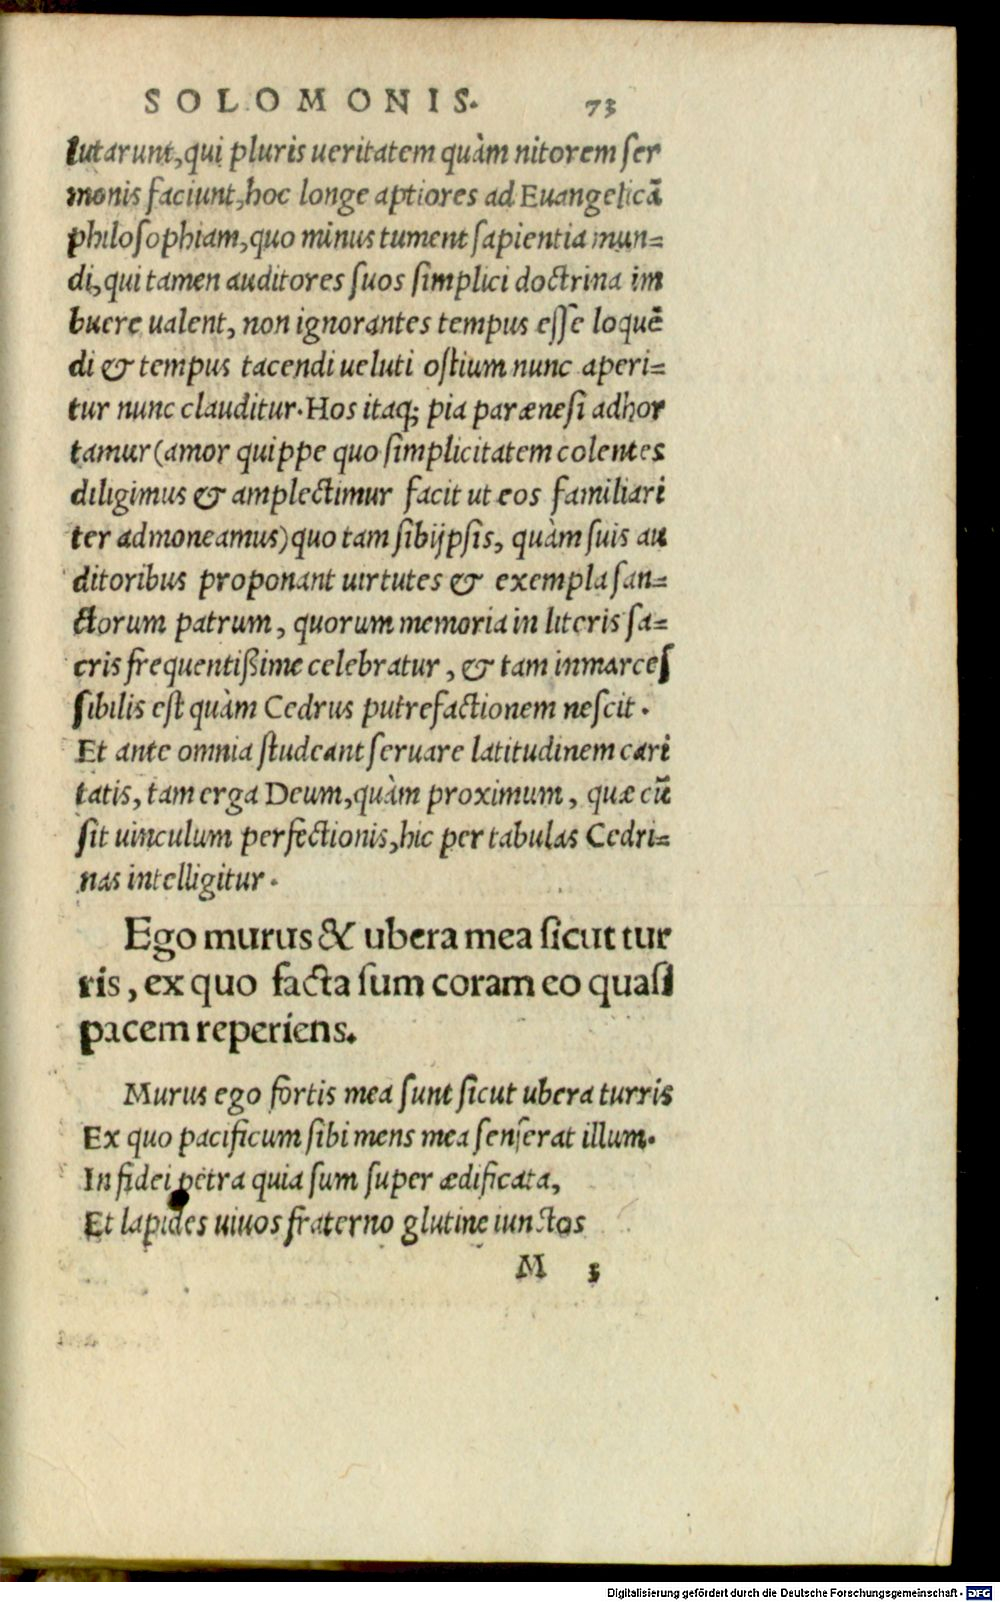 SOLOMONIS. 73
lutarunt, qui pluris ueritatem quàm nitorem ser
monis faciunt, hoc longe aptiores ad Euangelicā
philosophiam, quo minus tument sapientia mun=
di, qui tamen auditores suos simplici doctrina im
buere ualent, non ignorantes tempus esse loquē
di & tempus tacendi ueluti ostium nunc aperi=
tur nunc clauditur. Hos itaq; pia parænesi adhor
tamur (amor quippe quo simplicitatem colentes
diligimus & amplectimur facit ut eos familiari
ter admoneamus) quo tam sibijpsis, quàm suis au
ditoribus proponant uirtutes & exempla san=
ctorum patrum, quorum memoria in literis sa=
cris frequentißime celebratur, & tam inmarces
sibilis est quàm Cedrus putrefactionem nescit.
Et ante omnia studeant seruare latitudinem cari
tatis, tam erga Deum, quàm proximum, quæ cū
sit uinculum perfectionis, hic per tabulas Cedri=
nas intelligitur.
Ego murus & ubera mea sicut tur
ris, ex quo facta sum coram eo quasi
pacem reperiens.
Murus ego fortis mea sunt sicut ubera turris
Ex quo pacificum sibi mens mea senserat illum.
In fidei petra quia sum super ædificata,
Et lapides uiuos fraterno glutine iunctos
M 3
Digitalisierung gefördert durch die Deutsche Forschungsgemeinschaft - DFG